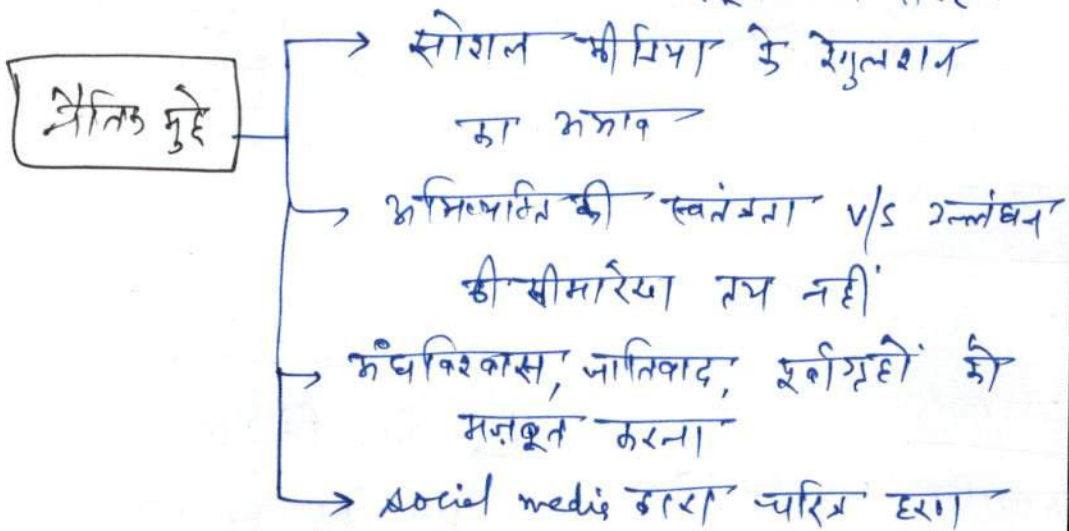 सोशल मीडिया के रेगुलेशन
का अभाव
नैतिक मुद्दे
अभिव्यक्ति की स्वतंत्रता v/s उल्लंघन
की सीमारेखा तय नहीं
अंधविश्वास, जातिवाद, पूर्वाग्रहों को
मज़बूत करना
social media द्वारा चरित्र हरण